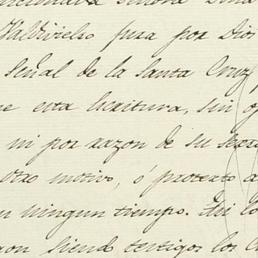 señora Doña
Valdivielso jura por Dios
Señal de la Santa Cruz
esta Escritura, sin
ni por razon de su sexo
otro motivo, ó protexto a
en ningun tiempo. Asi lo
siendo testigos los